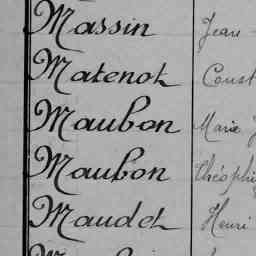 Massin Jean
Matenot Const
Maubon Marie J
Maubon Théophi
Maudet Henri